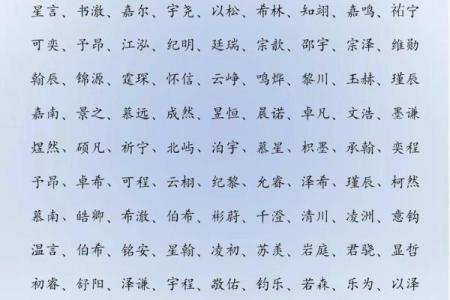 星言、书澈、嘉尔、宇尧、以松、希林、知翊、嘉鸣、祐宁
可奕、予昂、江泓、纪明、廷瑞、宗歆、邵宇、宗泽、维勋
翰辰、锦源、霆琛、怀信、云峥、鸣烨、黎川、玉赫、瑾辰
嘉南、景之、慕远、成然、昱恒、晨诺、卓凡、文浩、墨谦
煜然、硕凡、祈宁、北屿、泊宇、慕星、枳墨、承翰、奕程
予昂、卓希、可程、云栩、纪黎、允睿、泽希、瑾辰、柯然
慕南、皓卿、希澈、伯希、彬蔚、千澄、清川、凌洲、意钧
温言、伯希、铭安、星翰、凌初、苏羡、岩庭、君骁、显哲
初睿、舒阳、泽谦、宇程、敬佑、钓乐、若森、乐为、以泽